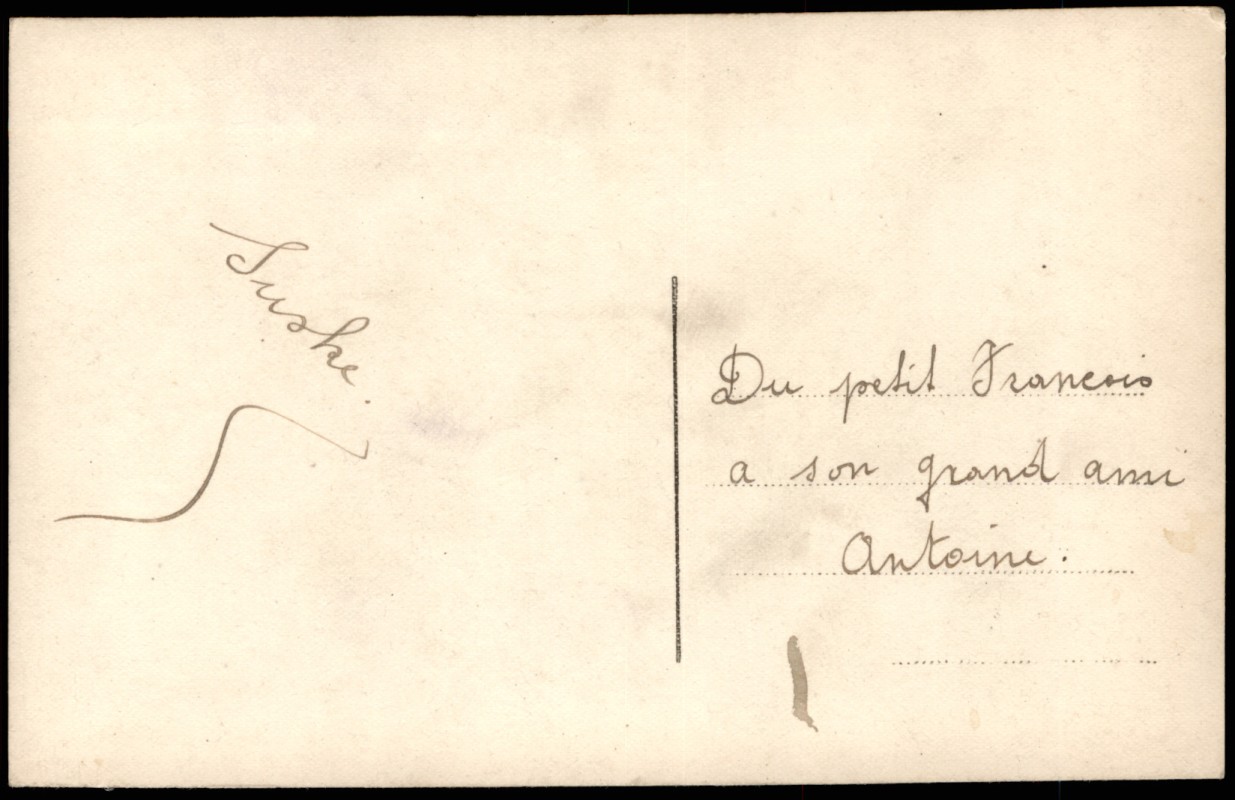 Suske.
Du petit Francois
a son grand ami
Antoine.